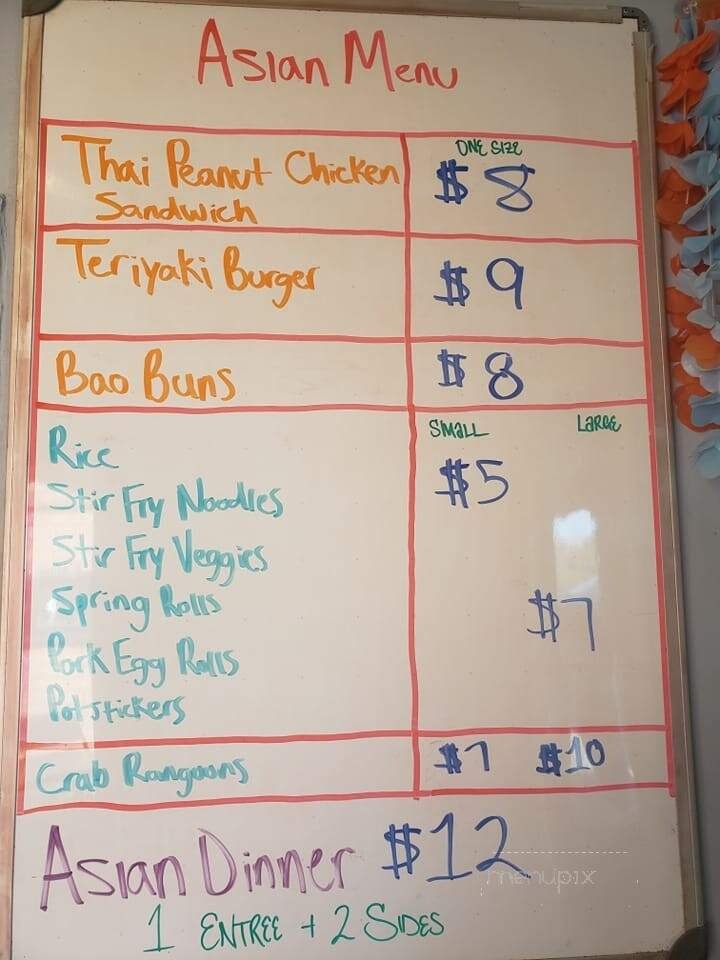 Asian Menu
Thai Peanut Chicken
Sandwich
ONE SIZE
$8
Teriyaki Burger
$9
Bao Buns
$8
SMALL LARGE
Rice
$5
Stir Fry Noodles
Stir Fry Veggies
Spring Rolls
$7
Pork Egg Rolls
Potstickers
Crab Rangoons
$7 $10
Asian Dinner $12
1 ENTREE + 2 SIDES
menupix